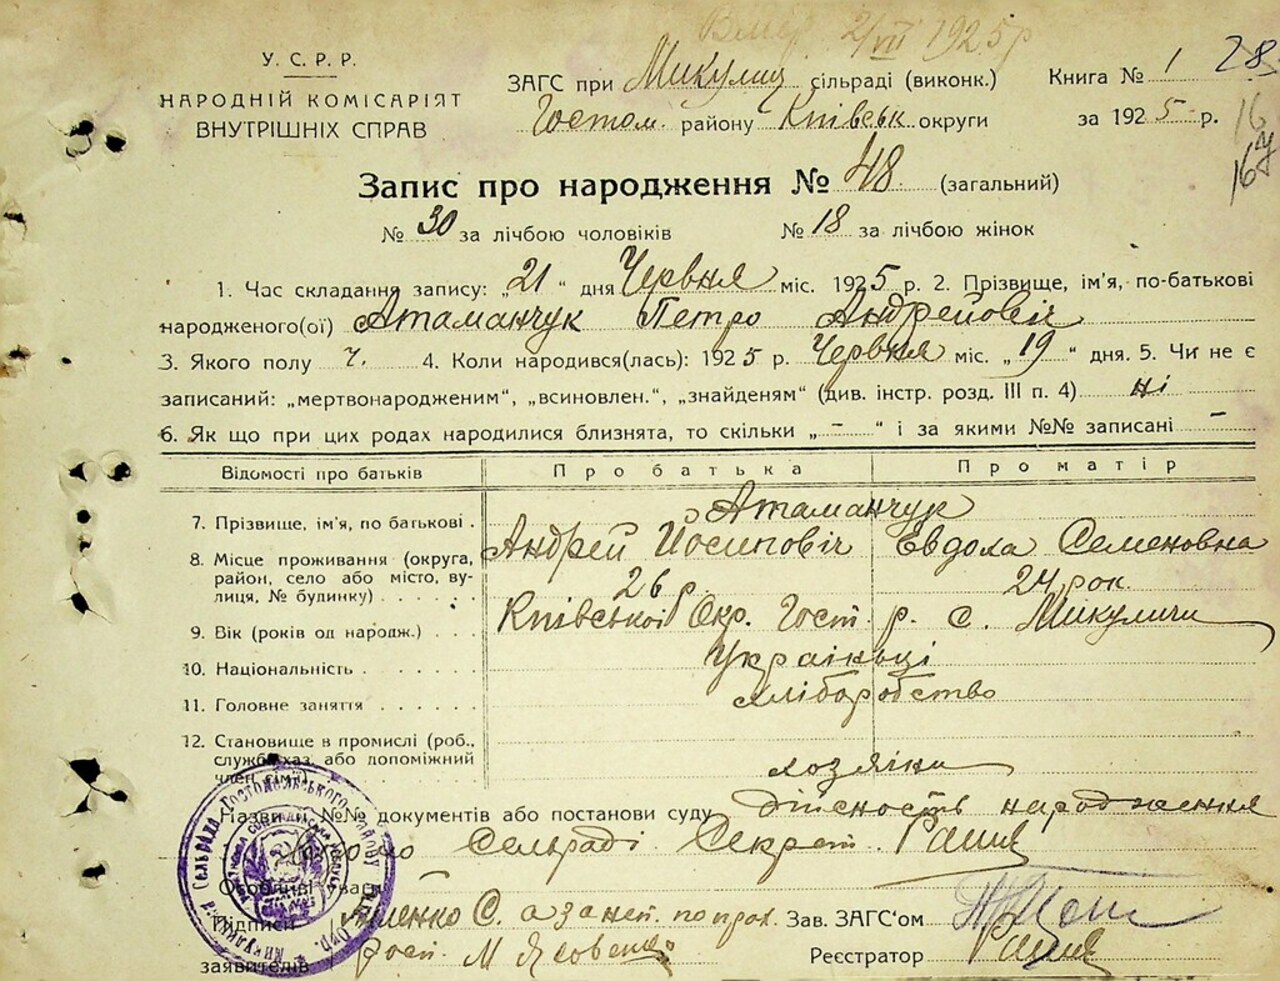 Вмер 2/VII 1925 р
У. С. Р. Р.
НАРОДНІЙ КОМІСАРІЯТ
ВНУТРІШНІХ СПРАВ
ЗАГС при Микулиц сільраді (виконк.)
Гостом. району Київськ округи
Книга № 1 28
за 1925 р.
16
167
Запис про народження № 48 (загальний)
№ 30 за лічбою чоловіків № 18 за лічбою жінок
1. Час складання запису: „21“ дня Червня міс. 1925 р. 2. Прізвище, ім'я, по-батькові
народженого(ої) Атаманчук Петро Андрейовіч
3. Якого полу ч. 4. Коли народився(лась): 1925 р. Червня міс. „19“ дня. 5. Чи не є
записаний: „мертвонародженим“, „всиновлен.“, „знайденям“ (див. інстр. розд. III п. 4) ні
6. Як що при цих родах народилися близнята, то скільки „-“ і за якими №№ записані -
Відомості про батьків Про батька Про матір
7. Прізвище, ім'я, по батькові . Атаманчук
Андрей Йосиповіч Евдоха Семеновна
8. Місце проживання (округа,
район, село або місто, ву-
лиця, № будинку) . . . . . .
26 р 24 рок.
9. Вік (років од народж.) . . . Київськоі Окр. Гост. р. с. Микуличи
10. Національність . . . . . . Украіньці
11. Головне заняття . . . . . . хліборобство
12. Становище в промислі (роб.,
служб. хаз. або допоміжний
член сім'ї)
хозяіни
Назви й №№ документів або постанови суду дійсность народження
Сельраді Секрет.
Особливі уваги
Підписи
заявителів
Зав. ЗАГС'ом
Реєстратор